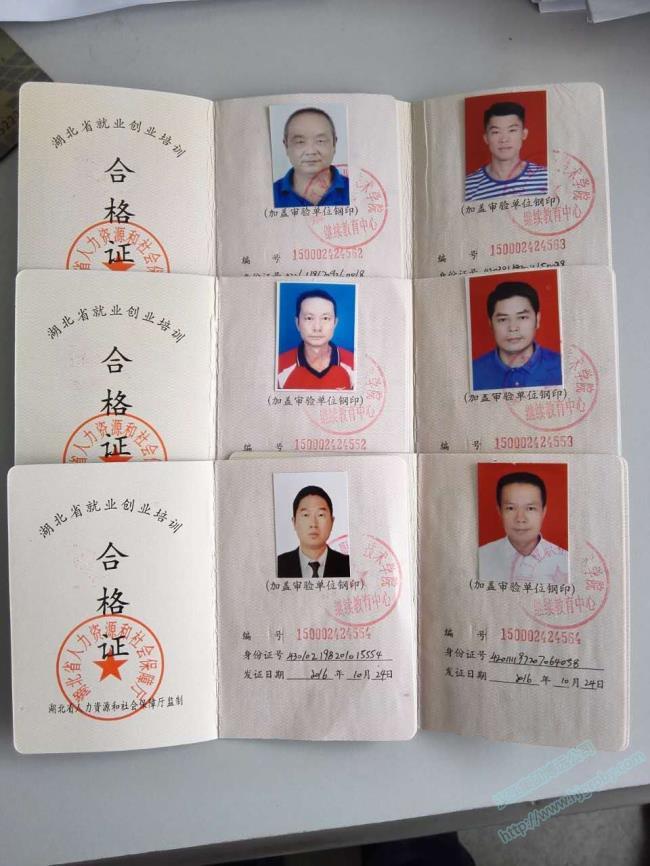 湖北省就业创业培训
合格证
省人力资源和社会保
(加盖审验单位钢印)
继续教育中心
编 号 150002424562
身份证号
术学院
(加盖审验单位钢印)
继续教育中心
编 号 150002424563
身份证号
湖北省就业创业培训
合格证
省人力资源和社会保障
(加盖审验单位钢印)
继续教育中心
编 号 150002424552
术学院
(加盖审验单位钢印)
继续教育中心
编 号 150002424553
湖北省就业创业培训
合格证
湖北省人力资源和社会保障厅
湖北省人力资源和社会保障厅监制
技术学院
(加盖审验单位钢印)
继续教育中心
编 号 150002424554
身份证号 430102198201015554
发证日期 2016 年 10月 24日
术学院
(加盖审验单位钢印)
继续教育中心
编 号 150002424564
身份证号 420111197207064058
发证日期 2016 年 10月 24日